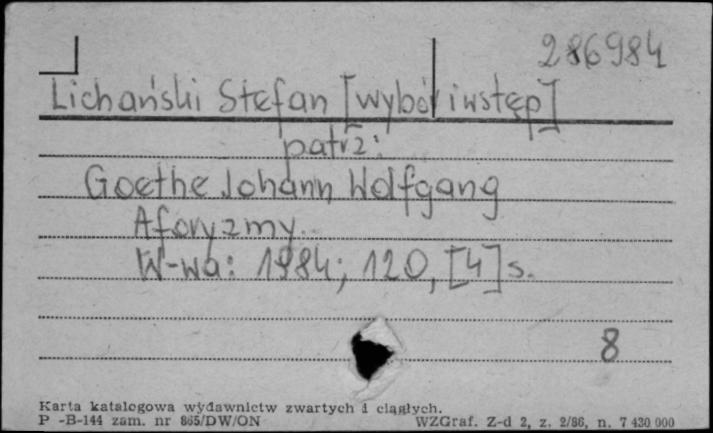 286984
Lichański Stefan [wybór i wstęp]
patrz:
Goethe Johann Wolfgang
Aforyzmy.
W-wa: 1984; 120, [4] s.
8
Karta katalogowa wydawnictw zwartych i ciągłych.
P -B-144 zam. nr 865/DW/ON WZGraf. Z-d 2, z. 2/86, n. 7 430 000